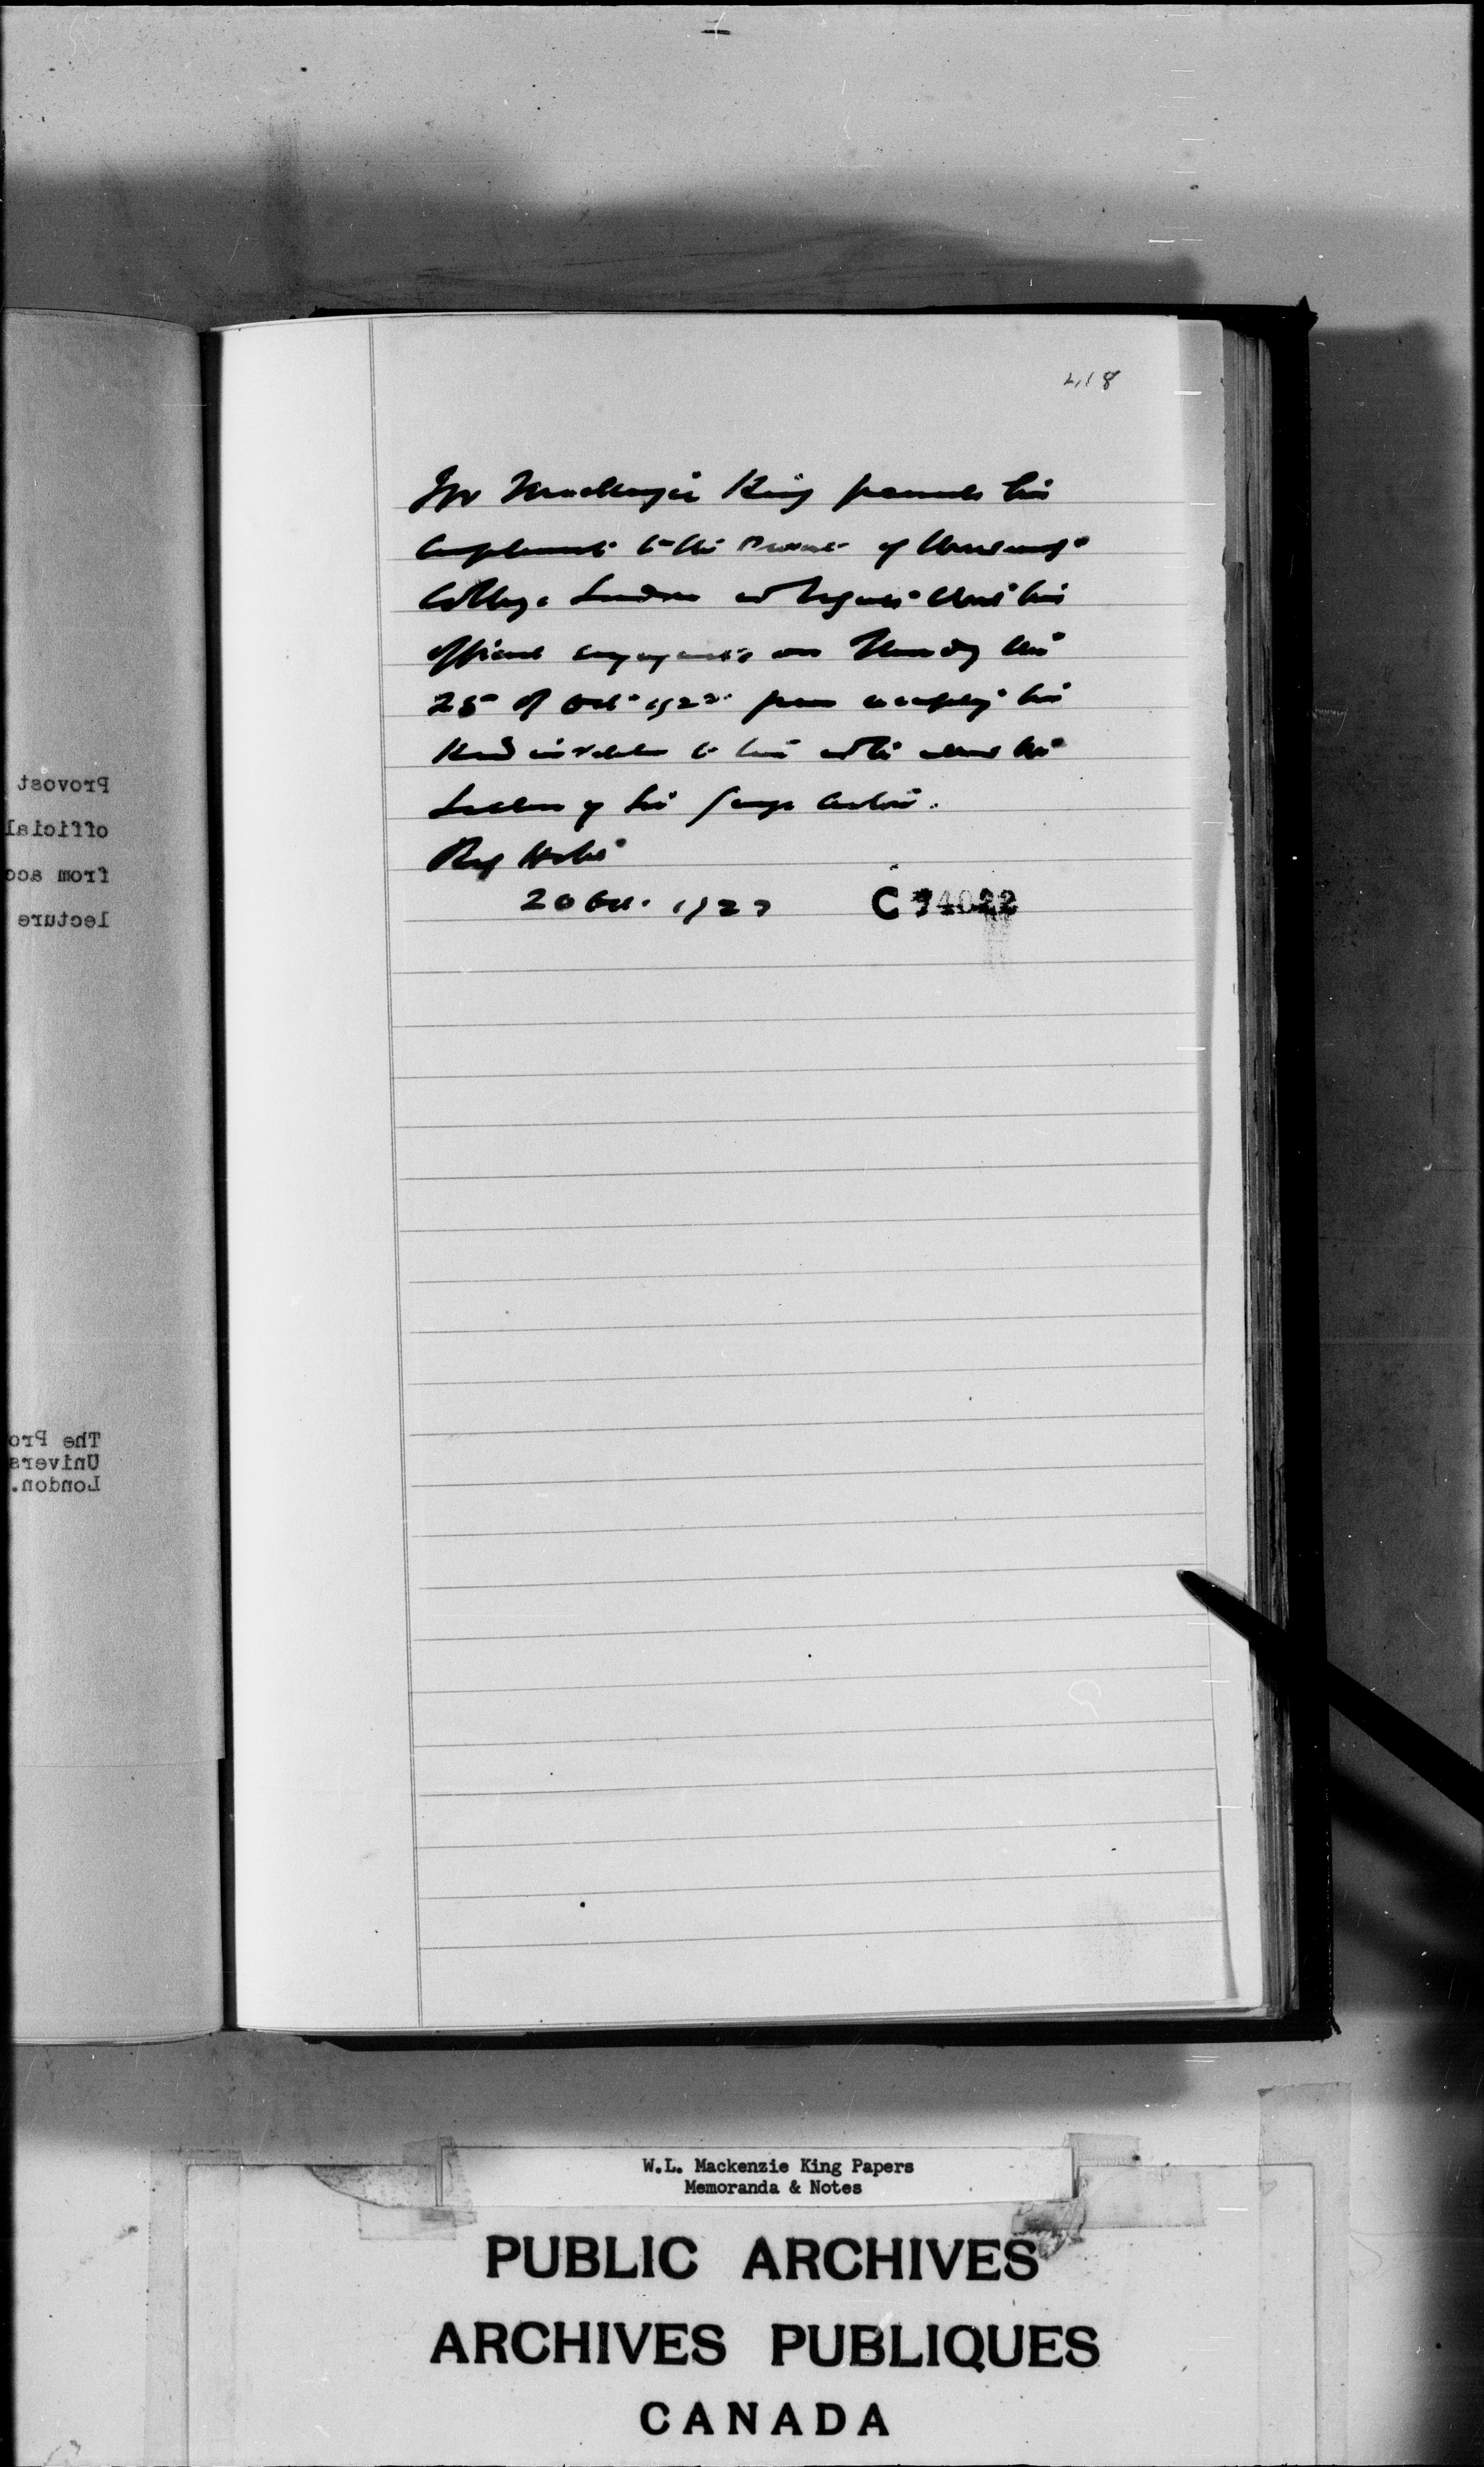 418
Mr Mackenzie King presents his
compliments to the Provost of University
College London and regrets that his
official engagements on Thursday the
25 of Oct 1923 from accepting his
kind invitation to him to attend the
Lecture by Sir George
20 Oct. 1923 C 74022
Provost
official
from acc
lecture
The Pro
Univers
London.
W.L. Mackenzie King Papers
Memoranda & Notes
PUBLIC ARCHIVES
ARCHIVES PUBLIQUES
CANADA